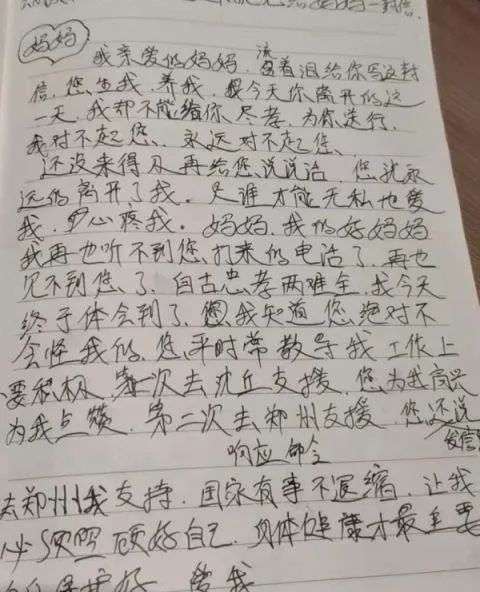 妈妈一封信.
妈妈
我亲爱的妈妈.流着泪给你写这封
信.您生我.养我.今天你离开的这
一天.我却不能给你尽孝.为你送行.
我对不起您.永远对不起您.
还没来得及再给您说说话 您就永
远的离开了我.又谁才能无私地爱
我.心疼我.妈妈.我的好妈妈
我再也听不到您打来的电话了.再也
见不到您了.自古忠孝两难全.我今天
终于体会到了.我知道您绝对不
会怪我的.您平时常教导我工作上
要积极.第一次去沈丘支援.您为我高兴
为我点赞.第二次去郑州支援.您还说
响应命令
发信
去郑州我支持.国家有事不退缩.让我
必须照顾好自己.身体健康才最重要
保护好 爱我